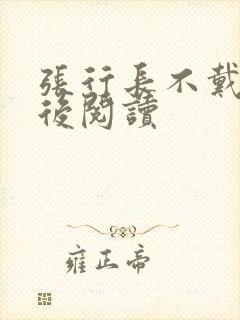 張行長不戴
後閱讀
雍正帝